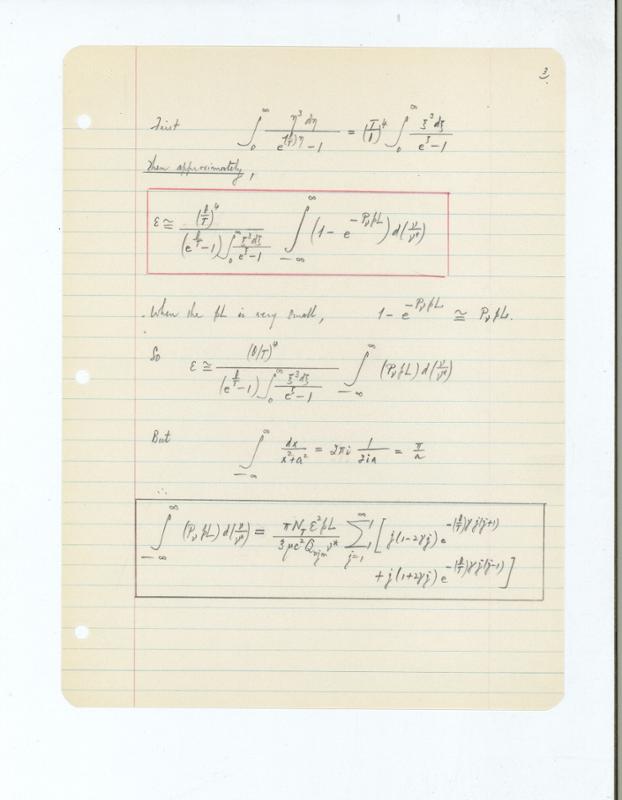 3.
First ∫₀^∞ η³ dη / (e^{(θ/T)η} − 1) = (T/θ)⁴ ∫₀^∞ ξ³ dξ / (e^ξ − 1)
Then approximately,
ε ≅ (θ/T)⁴ / ((e^{θ/T} − 1) ∫₀^∞ ξ³dξ / (e^ξ − 1)) ∫_{−∞}^∞ (1 − e^{−P_ν pL}) d(ν/ν*)
When the pL is very small, 1 − e^{−P_ν pL} ≅ P_ν pL.
So ε ≅ (θ/T)⁴ / ((e^{θ/T} − 1) ∫₀^∞ ξ³dξ / (e^ξ − 1)) ∫_{−∞}^∞ (P_ν pL) d(ν/ν*)
But ∫_{−∞}^∞ dx / (x² + a²) = 2πi 1/(2ia) = π/a
∴ ∫_{−∞}^∞ (P_ν pL) d(ν/ν*) = (π N_T ε² pL) / (3 μc² Q_{vjm} ν*) Σ_{j=1}^∞ 1/1 [ j(1−2γj) e^{−(θ/T)γj(j+1)}
+ j(1+2γj) e^{−(θ/T)γj(j−1)} ]